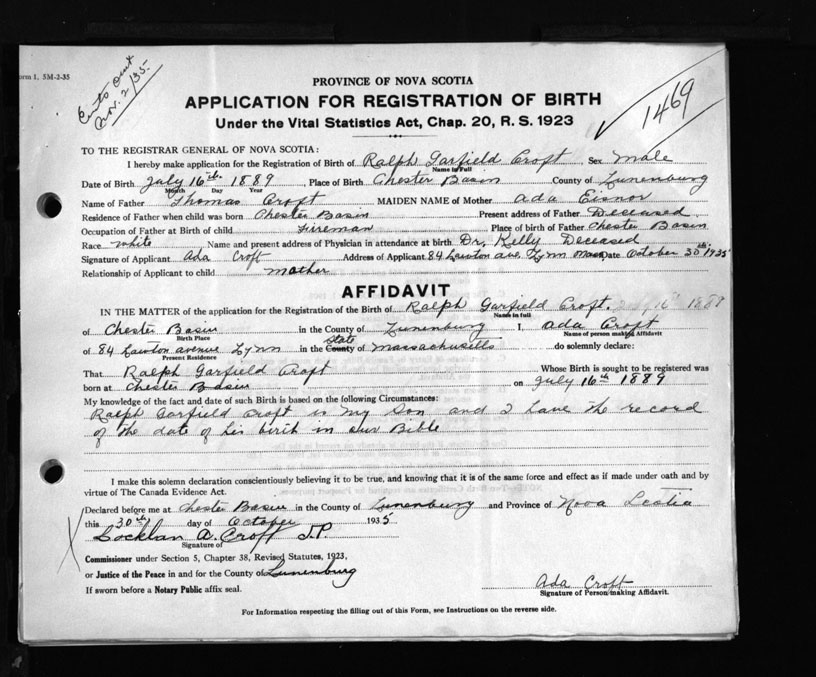 orm 1, 5M-2-35
Certs Sent
Nov. 2/35
1469
PROVINCE OF NOVA SCOTIA
APPLICATION FOR REGISTRATION OF BIRTH
Under the Vital Statistics Act, Chap. 20, R. S. 1923
TO THE REGISTRAR GENERAL OF NOVA SCOTIA:
I hereby make application for the Registration of Birth of Ralph Garfield Croft Sex Male
Name in Full
Date of Birth July 16th 1889 Place of Birth Chester Basin County of Lunenburg
Month Day Year
Name of Father Thomas Croft MAIDEN NAME of Mother Ada Eisnor
Residence of Father when child was born Chester Basin Present address of Father Deceased
Occupation of Father at Birth of child Fireman Place of birth of Father Chester Basin
Race White Name and present address of Physician in attendance at birth Dr. Kelly Deceased
Signature of Applicant Ada Croft Address of Applicant 84 Lawton ave. Lynn Mass Date October 30th 1935
Relationship of Applicant to child mother
AFFIDAVIT
IN THE MATTER of the application for the Registration of the Birth of Ralph Garfield Croft. 16th 1889
Name in full
of Chester Basin in the County of Lunenburg I, Ada Croft
Birth Place Name of person making Affidavit
state
of 84 Lawton avenue Lynn in the County of Massachusetts do solemnly declare:
Present Residence
That Ralph Garfield Croft Whose Birth is sought to be registered was
born at Chester Basin on July 16th 1889
My knowledge of the fact and date of such Birth is based on the following Circumstances:
Ralph Garfield Croft is my Son and I have the record
of the date of his birth in our Bible
I make this solemn declaration conscientiously believing it to be true, and knowing that it is of the same force and effect as if made under oath and by
virtue of The Canada Evidence Act.
Declared before me at Chester Basin in the County of Lunenburg and Province of Nova Scotia
this 30th day of October 1935
Locklan A. Croft J.P.
Signature of
Commissioner under Section 5, Chapter 38, Revised Statutes, 1923,
or Justice of the Peace in and for the County of Lunenburg
If sworn before a Notary Public affix seal.
Ada Croft
Signature of Person making Affidavit.
For Information respecting the filling out of this Form, see Instructions on the reverse side.